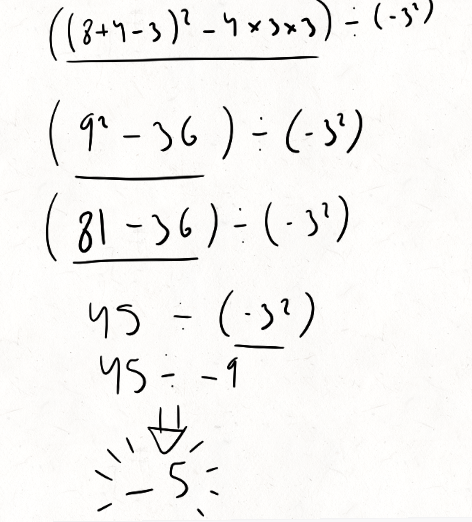 ((8+4-3)² - 4×3×3) ÷ (-3²)
(9² - 36) ÷ (-3²)
(81 - 36) ÷ (-3²)
45 ÷ (-3²)
45 ÷ -9
-5